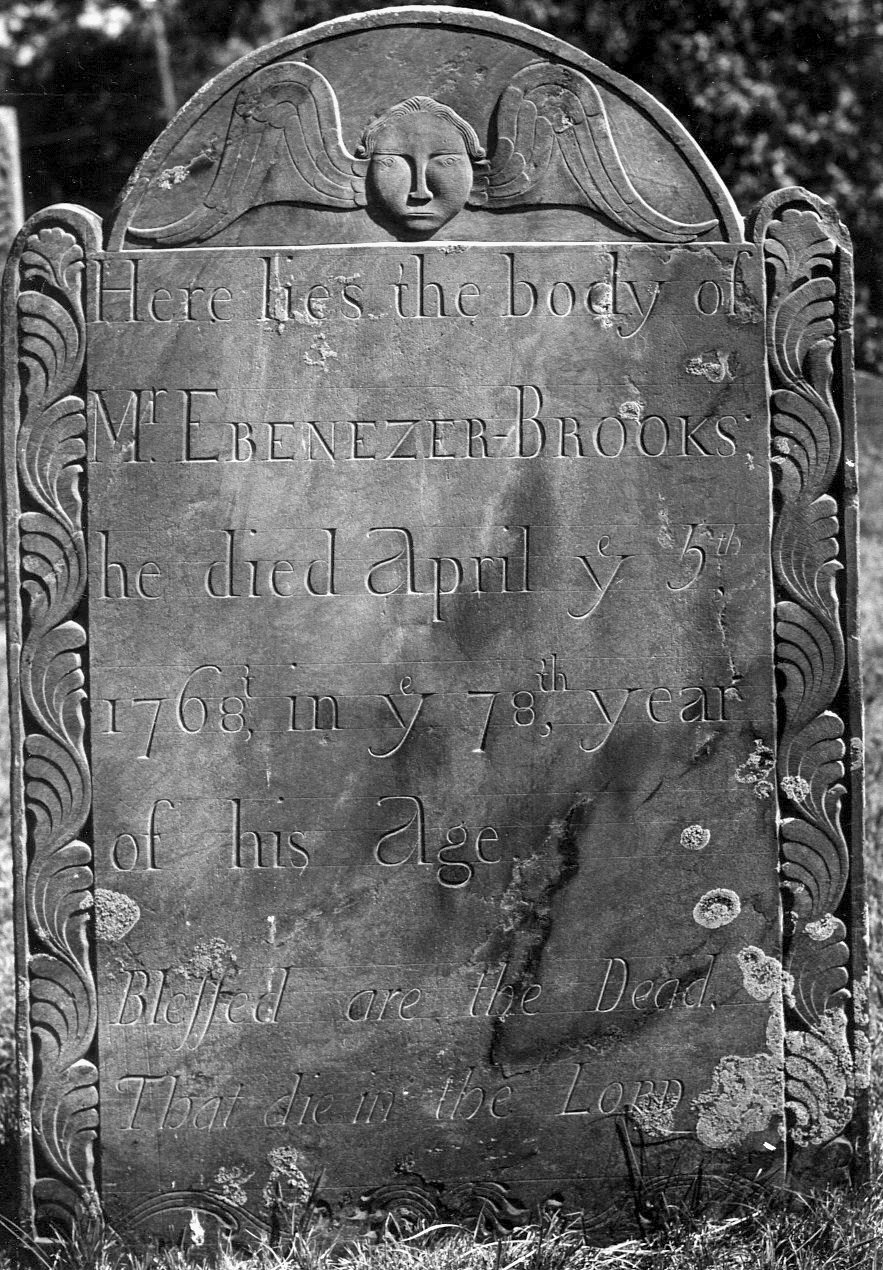 Here lies the body of
Mʳ. EBENEZER-BROOKS
he died April yᵉ 5ᵗʰ
1768ᵗ, in yᵉ 78ᵗʰ, year
of his Age
Bleſſed are the Dead,
That die in the LORD